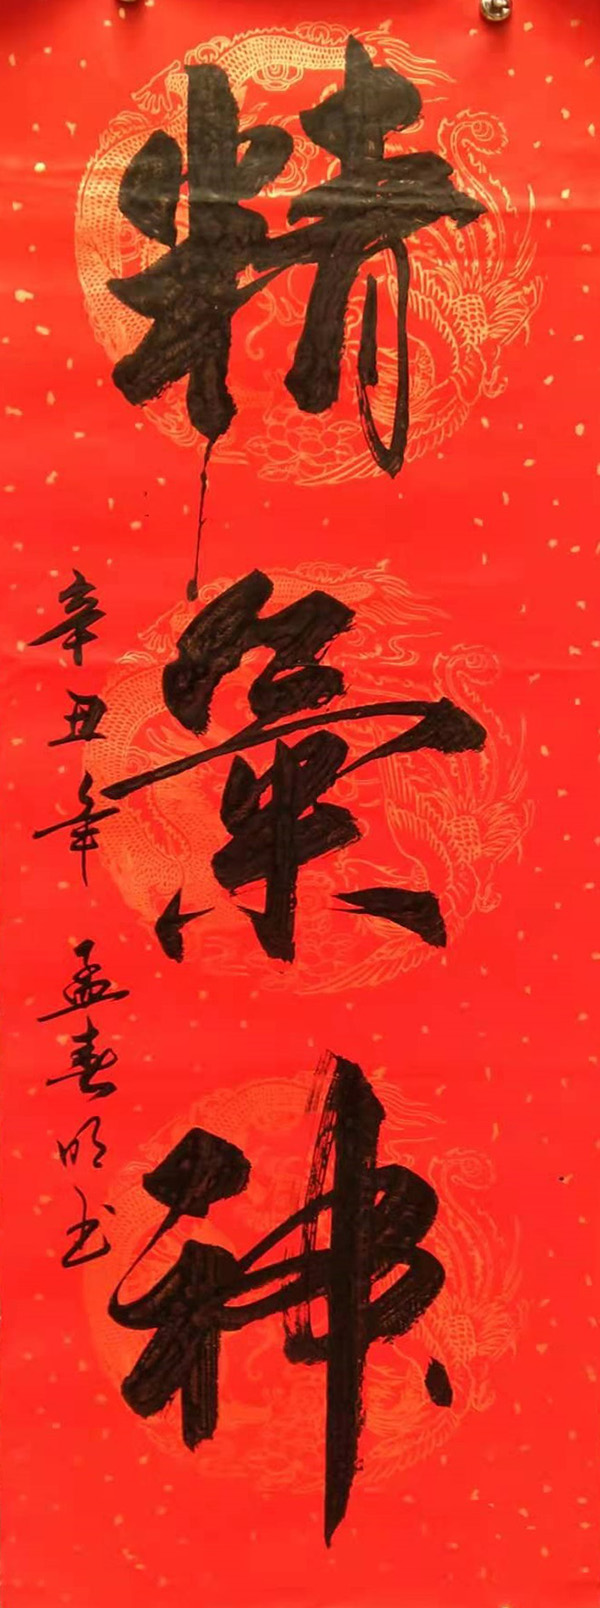 精氣神
辛丑年 孟春明书